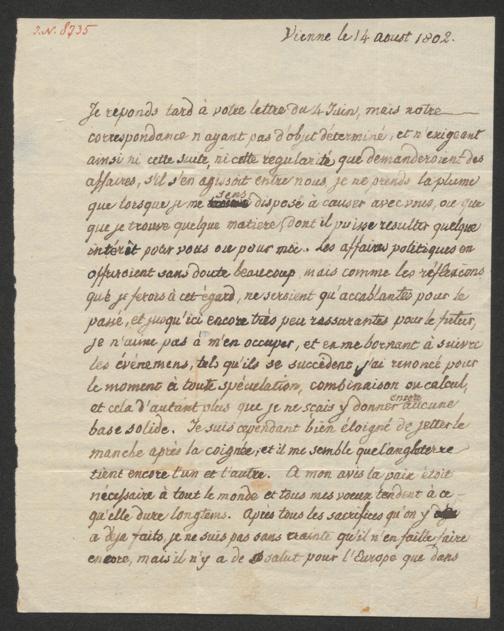 J.N. 8735
Vienne le 14 aoust 1802.
Je reponds tard à votre lettre du 4 Juin, mais notre
correspondance n'ayant pas d'objet déterminé, et n'exigeant
ainsi ni cette suite, ni cette regularité que demanderoient des
affaires, s'il s'en agissoit entre nous, je ne prends la plume
sens
que lorsque je me disposé à causer avec vous, ou que
que je trouve quelque matiere, dont il puisse resulter quelque
intérêt pour vous ou pour moi. Les affaires politiques en
offriroient sans doute beaucoup, mais comme les réflexions
que je ferois à cet égard, ne seroient qu'accablantes pour le
passé, et jusqu'ici encore très peu rassurantes pour le futur,
je n'aime pas à m'en occuper, et en me bornant à suivre
les événemens, tels qu'ils se succèdent, j'ai renoncé pour
le moment à toute spéculation, combinaison ou calcul,
encore
et cela d'autant plus que je ne sçais y donner aucune
base solide. Je suis cependant bien éloigné de jetter le
manche après la coignée, et il me semble que l'angleterre
tient encore l'un et l'autre. A mon avis la paix étoit
nécessaire à tout le monde et tous mes voeux tendent à ce
qu'elle dure longtems. Après tous les sacrifices qu'on y
a déja faits, je ne suis pas sans crainte qu'il n'en faille faire
encore, mais il n'y a de salut pour l'Europe que dans